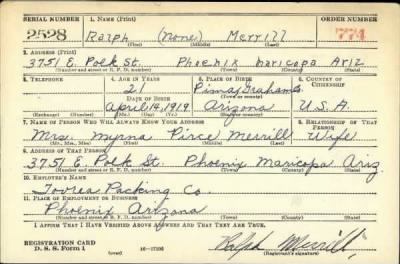 SERIAL NUMBER 1. NAME (Print) ORDER NUMBER
2528 Ralph (None) Merrill 774
(First) (Middle) (Last)
2. ADDRESS (Print)
3751 E. Polk St. Phoenix Maricopa Ariz
(Number and street or R. F. D. number) (Town) (County) (State)
3. TELEPHONE 4. AGE IN YEARS 5. PLACE OF BIRTH 6. COUNTRY OF CITIZENSHIP
21 Pima, Graham
DATE OF BIRTH (Town or county)
April 14, 1919 Arizona U.S.A.
(Exchange) (Number) (Mo.) (Day) (Yr.) (State or country)
7. NAME OF PERSON WHO WILL ALWAYS KNOW YOUR ADDRESS 8. RELATIONSHIP OF THAT PERSON
Mrs. Myrna Pirce Merrill Wife
(Mr., Mrs., Miss) (First) (Middle) (Last)
9. ADDRESS OF THAT PERSON
3751 E. Polk St. Phoenix Maricopa Ariz.
(Number and street or R. F. D. number) (Town) (County) (State)
10. EMPLOYER'S NAME
Tovrea Packing Co.
11. PLACE OF EMPLOYMENT OR BUSINESS
Phoenix Arizona
(Number and street or R. F. D. number) (Town) (County) (State)
I AFFIRM THAT I HAVE VERIFIED ABOVE ANSWERS AND THAT THEY ARE TRUE.
REGISTRATION CARD
D. S. S. Form 1 (over) Ralph Merrill
(Registrant's signature)